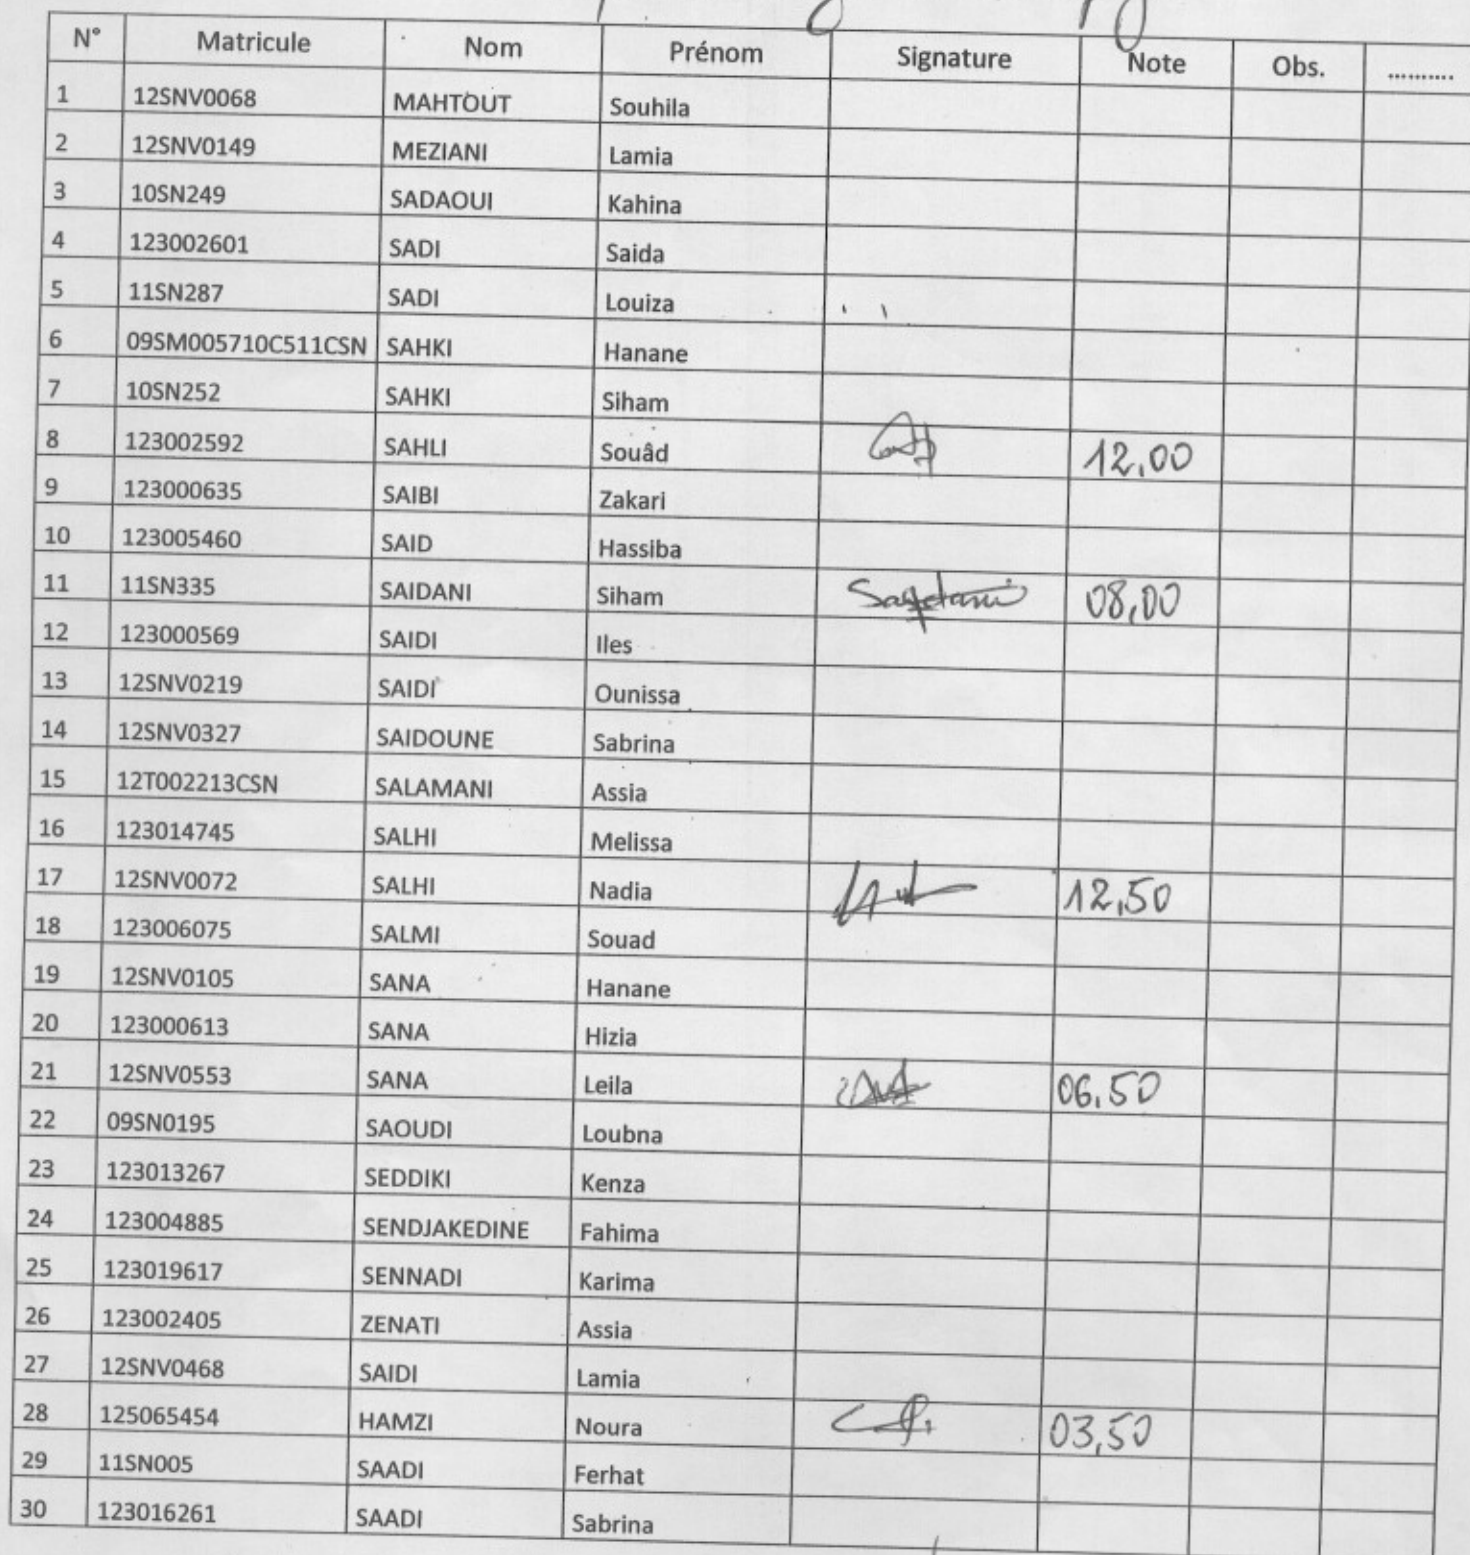 N° Matricule Nom Prénom Signature Note Obs. ..........
1 12SNV0068 MAHTOUT Souhila
2 12SNV0149 MEZIANI Lamia
3 10SN249 SADAOUI Kahina
4 123002601 SADI Saida
5 11SN287 SADI Louiza
6 09SM005710C511CSN SAHKI Hanane
7 10SN252 SAHKI Siham
8 123002592 SAHLI Souâd 12,00
9 123000635 SAIBI Zakari
10 123005460 SAID Hassiba
11 11SN335 SAIDANI Siham 08,00
12 123000569 SAIDI Iles
13 12SNV0219 SAIDI Ounissa
14 12SNV0327 SAIDOUNE Sabrina
15 12T002213CSN SALAMANI Assia
16 123014745 SALHI Melissa
17 12SNV0072 SALHI Nadia 12,50
18 123006075 SALMI Souad
19 12SNV0105 SANA Hanane
20 123000613 SANA Hizia
21 12SNV0553 SANA Leila 06,50
22 09SN0195 SAOUDI Loubna
23 123013267 SEDDIKI Kenza
24 123004885 SENDJAKEDINE Fahima
25 123019617 SENNADI Karima
26 123002405 ZENATI Assia
27 12SNV0468 SAIDI Lamia
28 125065454 HAMZI Noura 03,50
29 11SN005 SAADI Ferhat
30 123016261 SAADI Sabrina